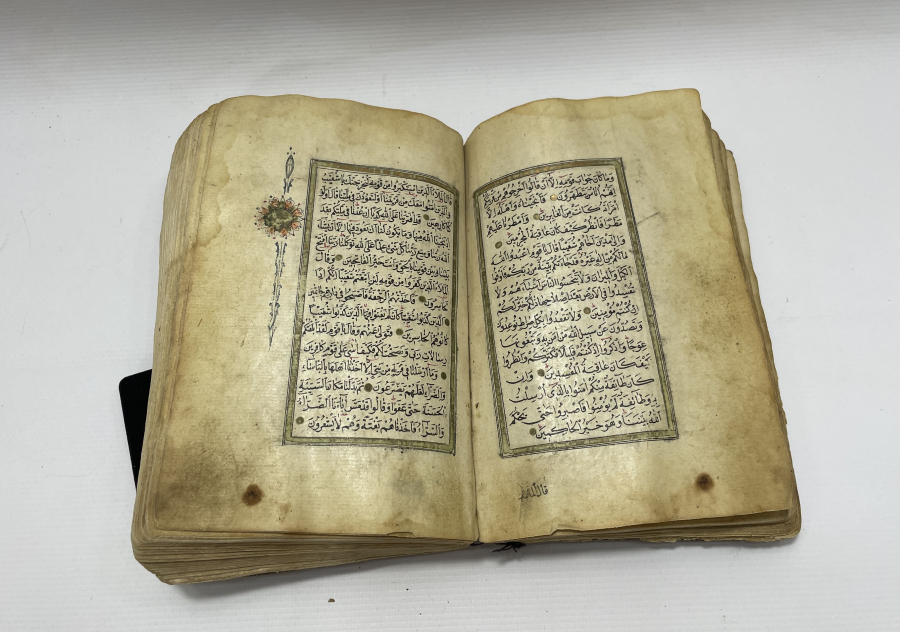 وما كان جواب قومه إلا أن قالوا أخرجوهم من قريتكم
إنهم أناس يتطهرون فأنجيناه وأهله إلا
امرأته كانت من الغابرين وأمطرنا عليهم
مطرا فانظر كيف كان عاقبة المجرمين
وإلى مدين أخاهم شعيبا قال يا قوم اعبدوا الله
ما لكم من إله غيره قد جاءتكم بينة من ربكم فأوفوا
الكيل والميزان ولا تبخسوا الناس أشياءهم ولا
تفسدوا في الأرض بعد إصلاحها ذلكم خير لكم
إن كنتم مؤمنين ولا تقعدوا بكل صراط توعدون
وتصدون عن سبيل الله من آمن به وتبغونها
عوجا واذكروا إذ كنتم قليلا فكثركم وانظروا
كيف كان عاقبة المفسدين وإن
كان طائفة منكم آمنوا بالذي أرسلت
به وطائفة لم يؤمنوا فاصبروا حتى يحكم
الله بيننا وهو خير الحاكمين
قال الملأ
قال الملأ الذين استكبروا من قومه لنخرجنك يا شعيب
والذين آمنوا معك من قريتنا أو لتعودن في ملتنا قال أولو
كنا كارهين قد افترينا على الله كذبا إن عدنا في ملتكم بعد
إذ نجانا الله منها وما يكون لنا أن نعود فيها إلا أن يشاء
الله ربنا وسع ربنا كل شيء علما على الله توكلنا ربنا افتح
بيننا وبين قومنا بالحق وأنت خير الفاتحين وقال
الملأ الذين كفروا من قومه لئن اتبعتم شعيبا إنكم إذا
لخاسرون فأخذتهم الرجفة فأصبحوا في دارهم جاثمين
الذين كذبوا شعيبا كأن لم يغنوا فيها الذين كذبوا شعيبا
كانوا هم الخاسرين فتولى عنهم وقال يا قوم لقد أبلغتكم
رسالات ربي ونصحت لكم فكيف آسى على قوم كافرين
وما أرسلنا في قرية من نبي إلا أخذنا أهلها بالبأساء
والضراء لعلهم يضرعون ثم بدلنا مكان السيئة
الحسنة حتى عفوا وقالوا قد مس آباءنا الضراء
والسراء فأخذناهم بغتة وهم لا يشعرون